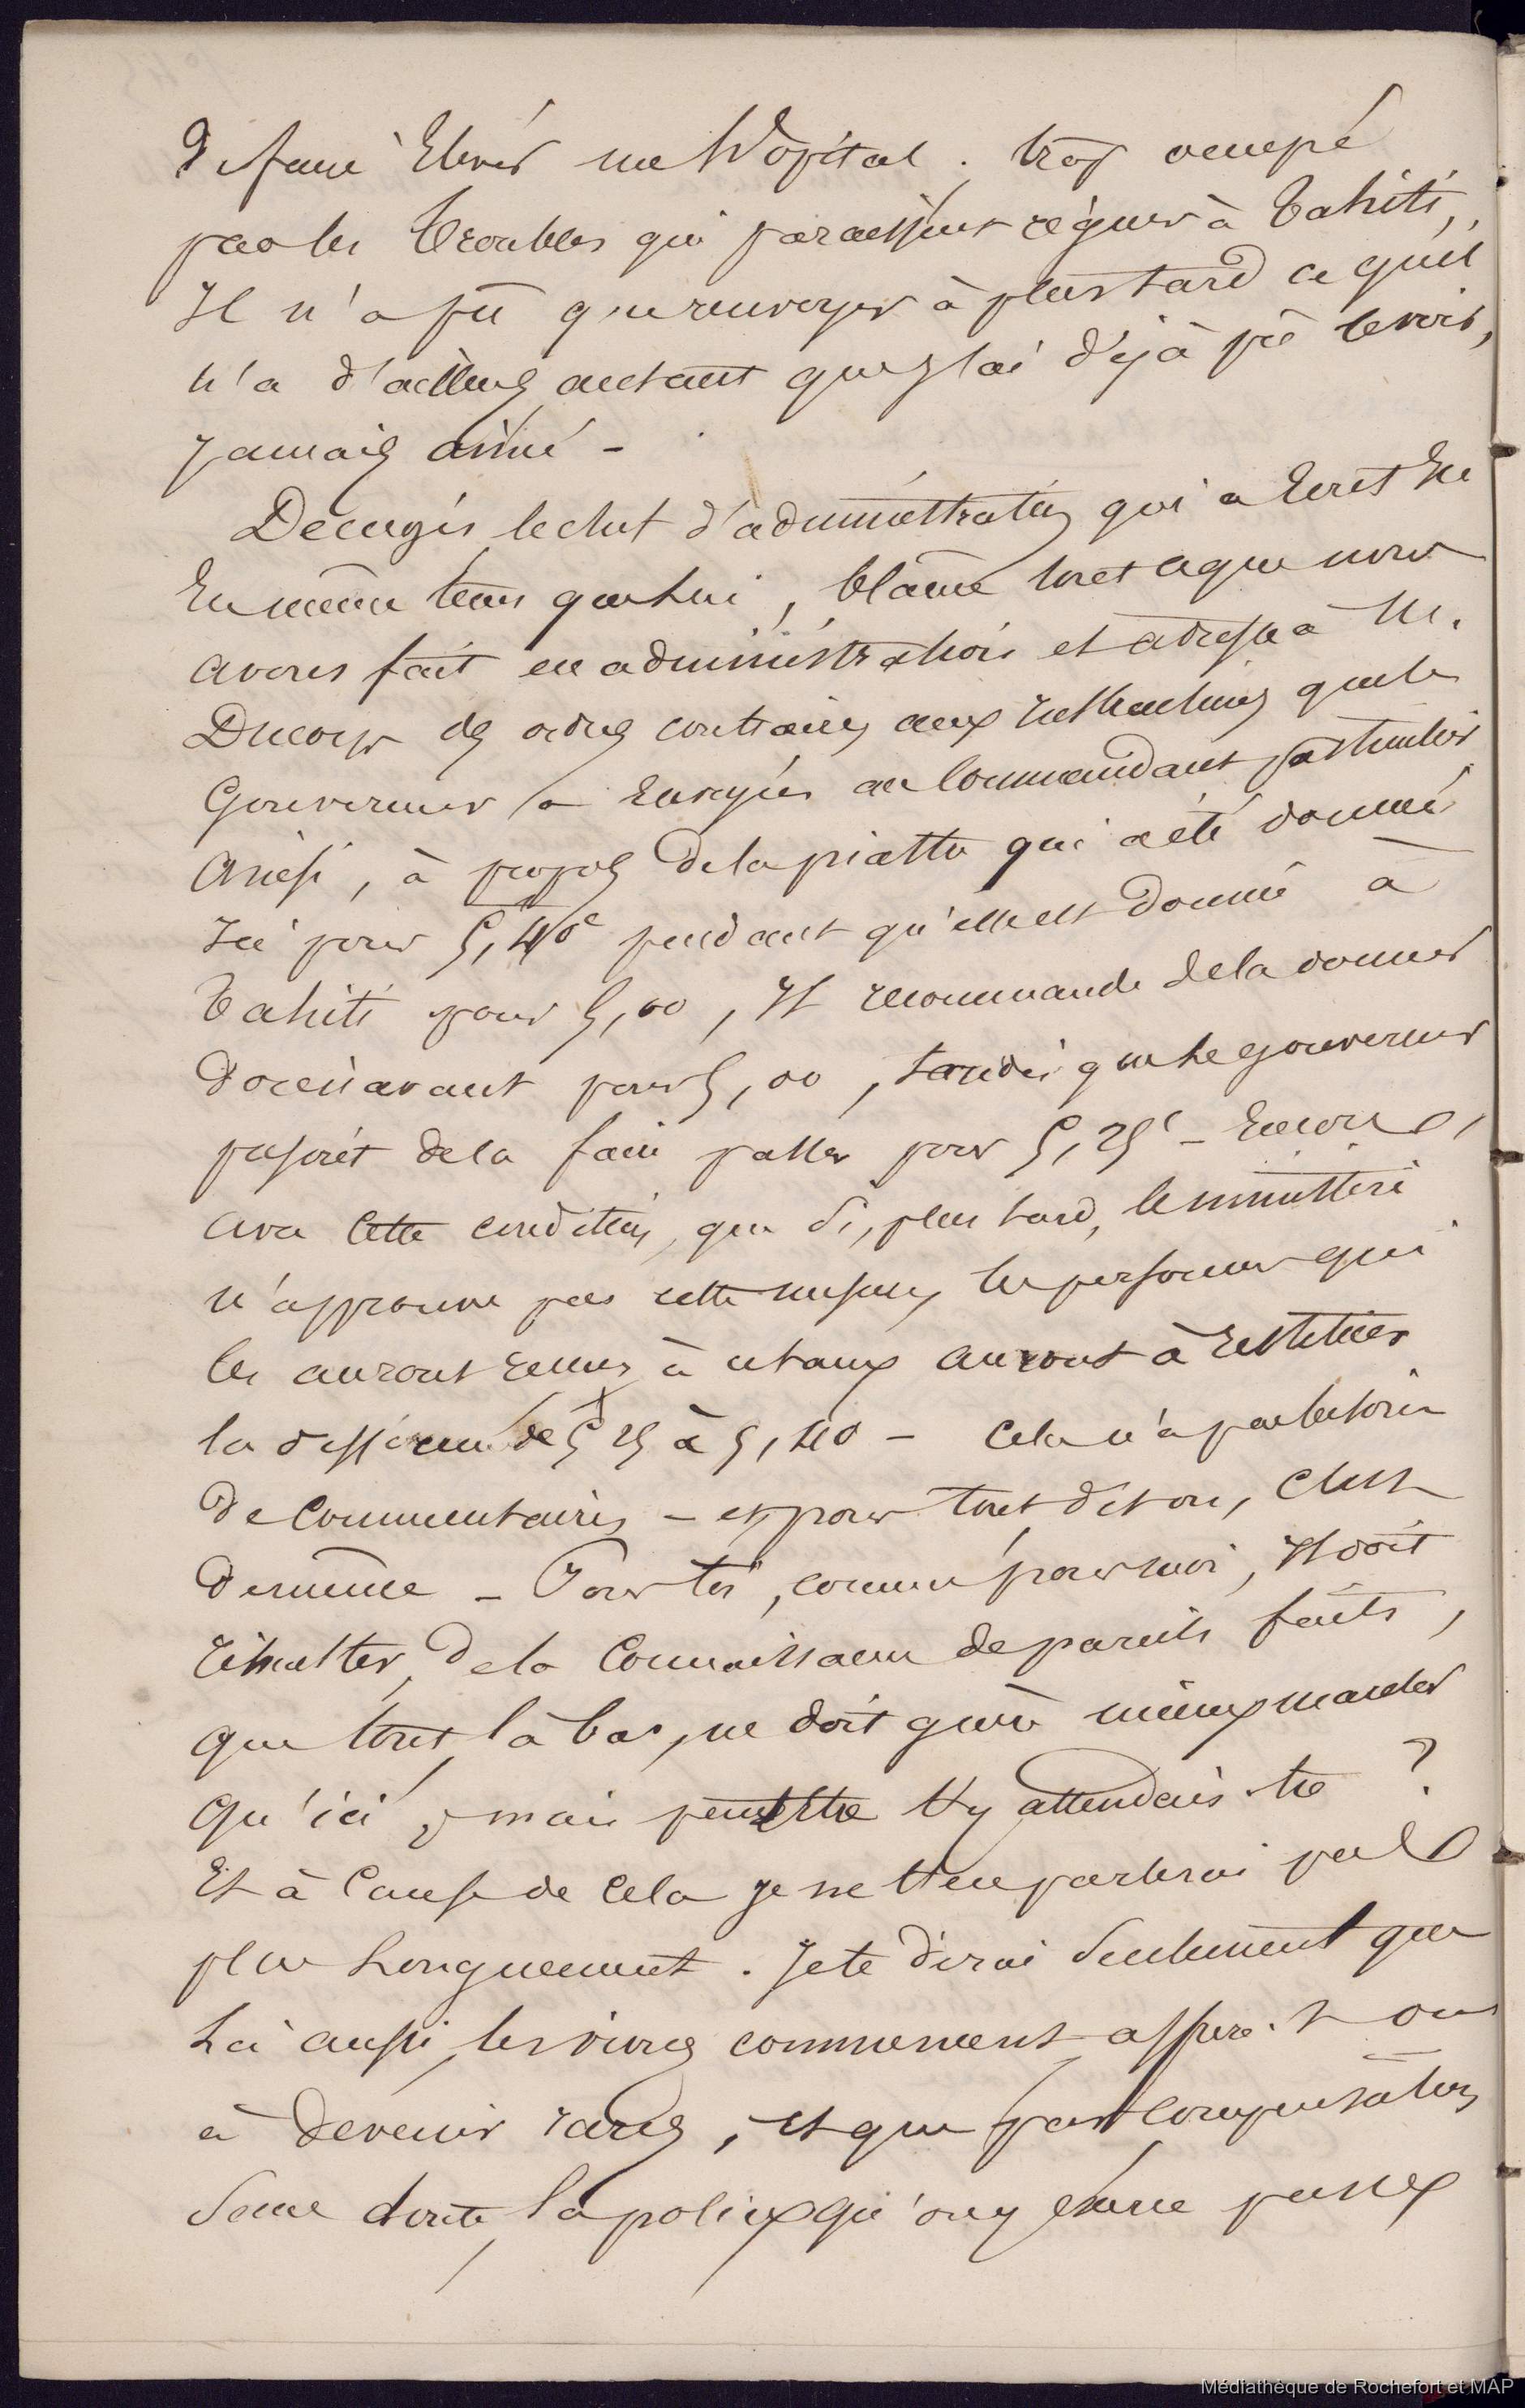 de faire élever un hôpital. trop occupé
par les troubles qui paraissent régner à Tahiti,
Il n'a pû que renvoyer à plus tard ce qu'il
n'a d'ailleurs autant que j'ai déjà pû le voir,
jamais aimé -
Decugis le chef d'administration qui a écrit ici
En même tems que lui, blâme tout ce que nous
avons fait en administration et adresse à M.
Ducorps des ordres contraires aux instructions que le
Gouverneur a envoyées au Commandant particulier
Ainsi, à propos de la piastre qui a été donné
Ici pour 5,40c pendant qu'elle est donné à
Tahiti pour 5,00, Il recommande de la donner
dorénavant pour 5,00, tandis que le gouverneur
prescrit de la faire passer pour 5,25c - Encore,
avec cette condition, que si, plus tard, le ministère
n'approuve pas cette mesure, les personnes qui
les auront reçues à ce taux auront à restituer
la différence de 5 25 à 5,40 - Cela n'a pas besoin
de Commentaires - et pour tout dit on, C'est
de même - Pour toi, comme pour moi, Il doit
résulter, de la Connaissance de pareils faits,
que tout là bas, ne doit guère mieux marcher
qu'ici, mais peut être t'y attendais-tu ?
Et à Cause de Cela je ne t'en parlerai pas
plus Longuement. Je te dirai seulement que
Là aussi, les vivres commencent assure-t-on
à devenir rares, et que par compensation
sans doute, la police qu'on y exerce